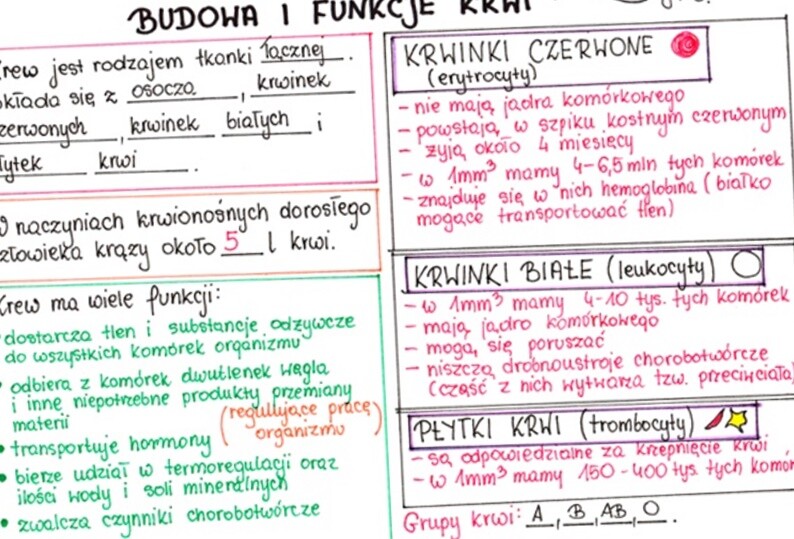 BUDOWA I FUNKCJE KRWI
rew jest rodzajem tkanki łącznej.
kłada się z osocza, krwinek
zerwonych, krwinek białych i
łytek krwi.
naczyniach krwionośnych dorosłego
złowieka krąży około 5 l krwi.
Krew ma wiele funkcji:
dostarcza tlen i substancje odżywcze
do wszystkich komórek organizmu
• odbiera z komórek dwutlenek węgla
i inne niepotrzebne produkty przemiany
materii
• transportuje hormony (regulujące pracę
organizmu)
• bierze udział w termoregulacji oraz
ilości wody i soli mineralnych
• zwalcza czynniki chorobotwórcze
KRWINKI CZERWONE
(erytrocyty)
- nie mają jądra komórkowego
- powstają w szpiku kostnym czerwonym
- żyją około 4 miesięcy
- w 1mm³ mamy 4-6,5 mln tych komórek
- znajduje się w nich hemoglobina (białko
mogące transportować tlen)
KRWINKI BIAŁE (leukocyty)
- w 1mm³ mamy 4-10 tys. tych komórek
- mają jądro komórkowego
- mogą się poruszać
- niszczą drobnoustroje chorobotwórcze
(część z nich wytwarza tzw. przeciwciała)
PŁYTKI KRWI (trombocyty)
- są odpowiedzialne za krzepnięcie krwi
- w 1mm³ mamy 150-400 tys. tych komór
Grupy krwi: A, B, AB, O.